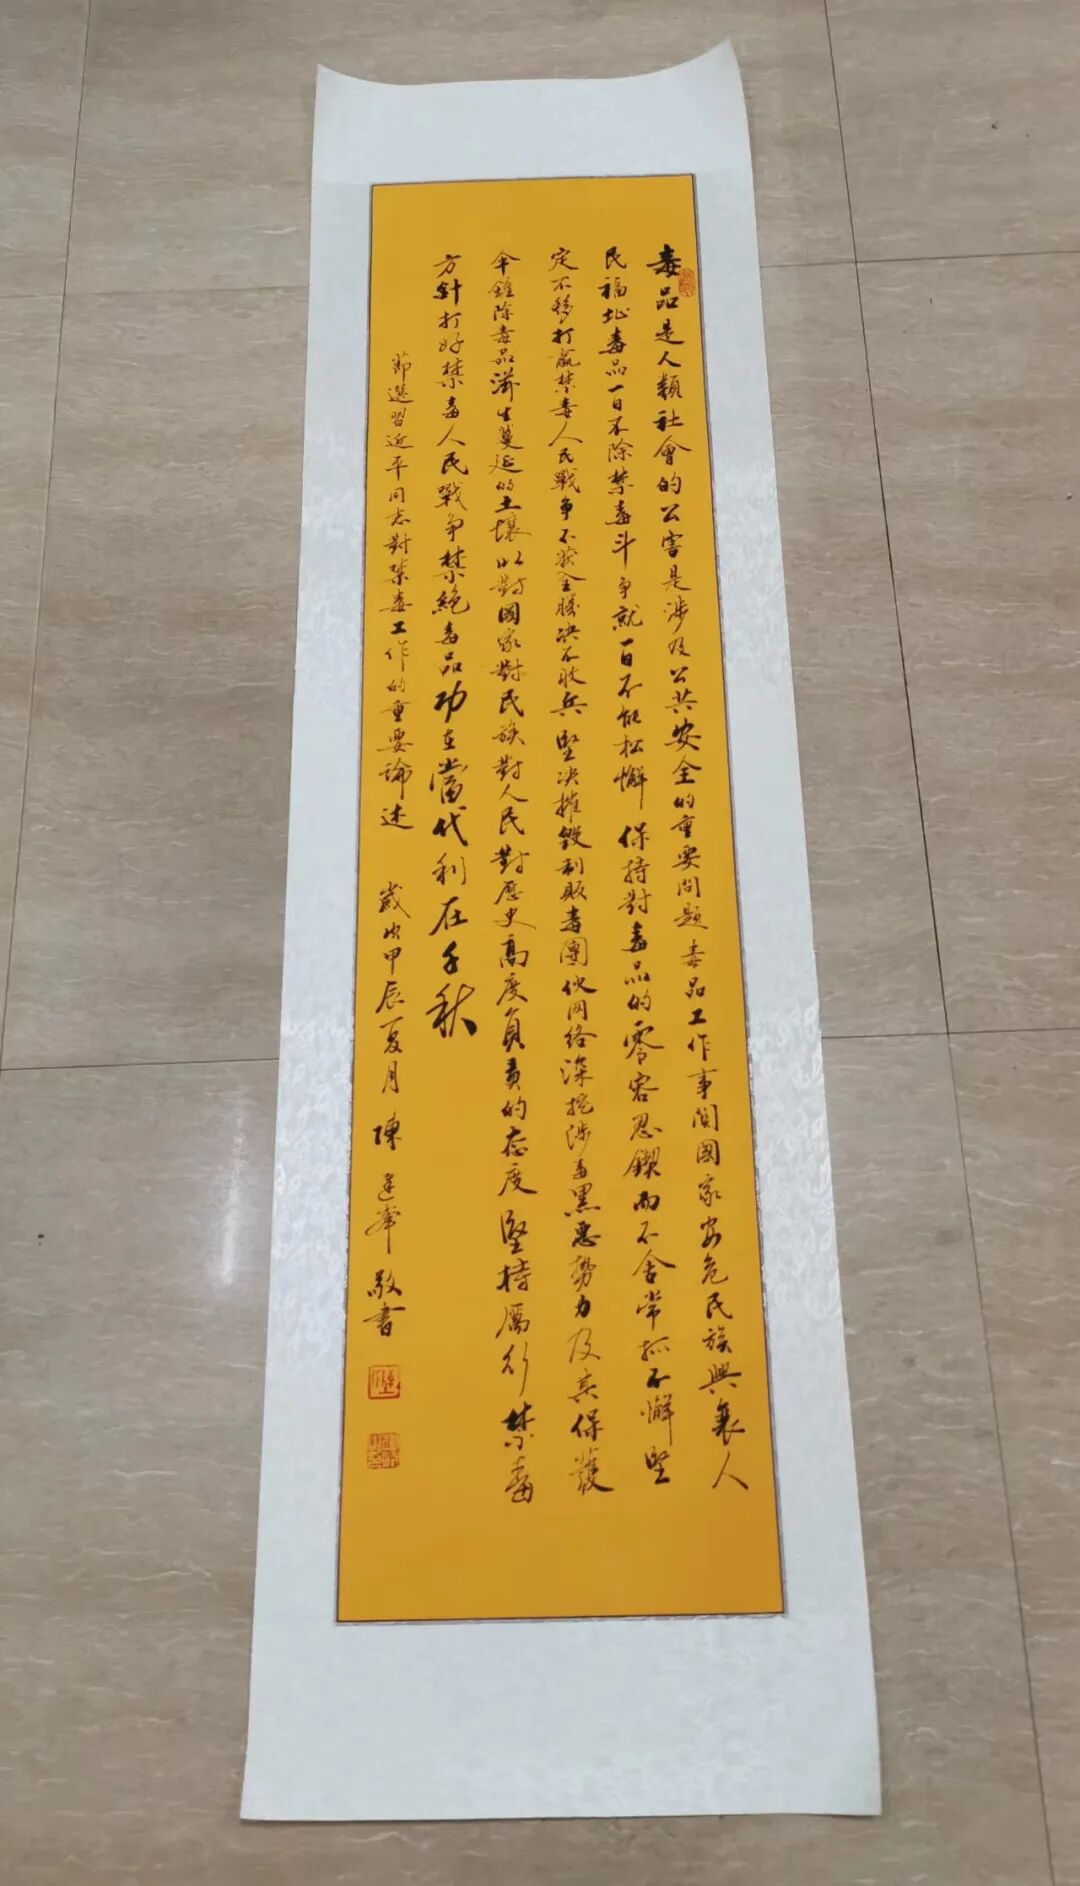 毒品是人類社會的公害是涉及公共安全的重要問題毒品工作事関國家安危民族興衰人
民福址毒品一日不除禁毒斗争就一日不能松懈保持對毒品的零容忍鍥而不舍常抓不懈堅
定不移打贏禁毒人民戰争不获全勝决不收兵堅决摧毀制販毒團伙网络深挖涉毒黑惡勢力及其保護
伞鏟除毒品滋生蔓延的土壤以對國家對民族對人民對歷史高度負責的态度堅持厲行禁毒
方針打好禁毒人民戰争禁絶毒品功在當代利在千秋
節選習近平同志對禁毒工作的重要論述 歲次甲辰夏月 陳 敬書